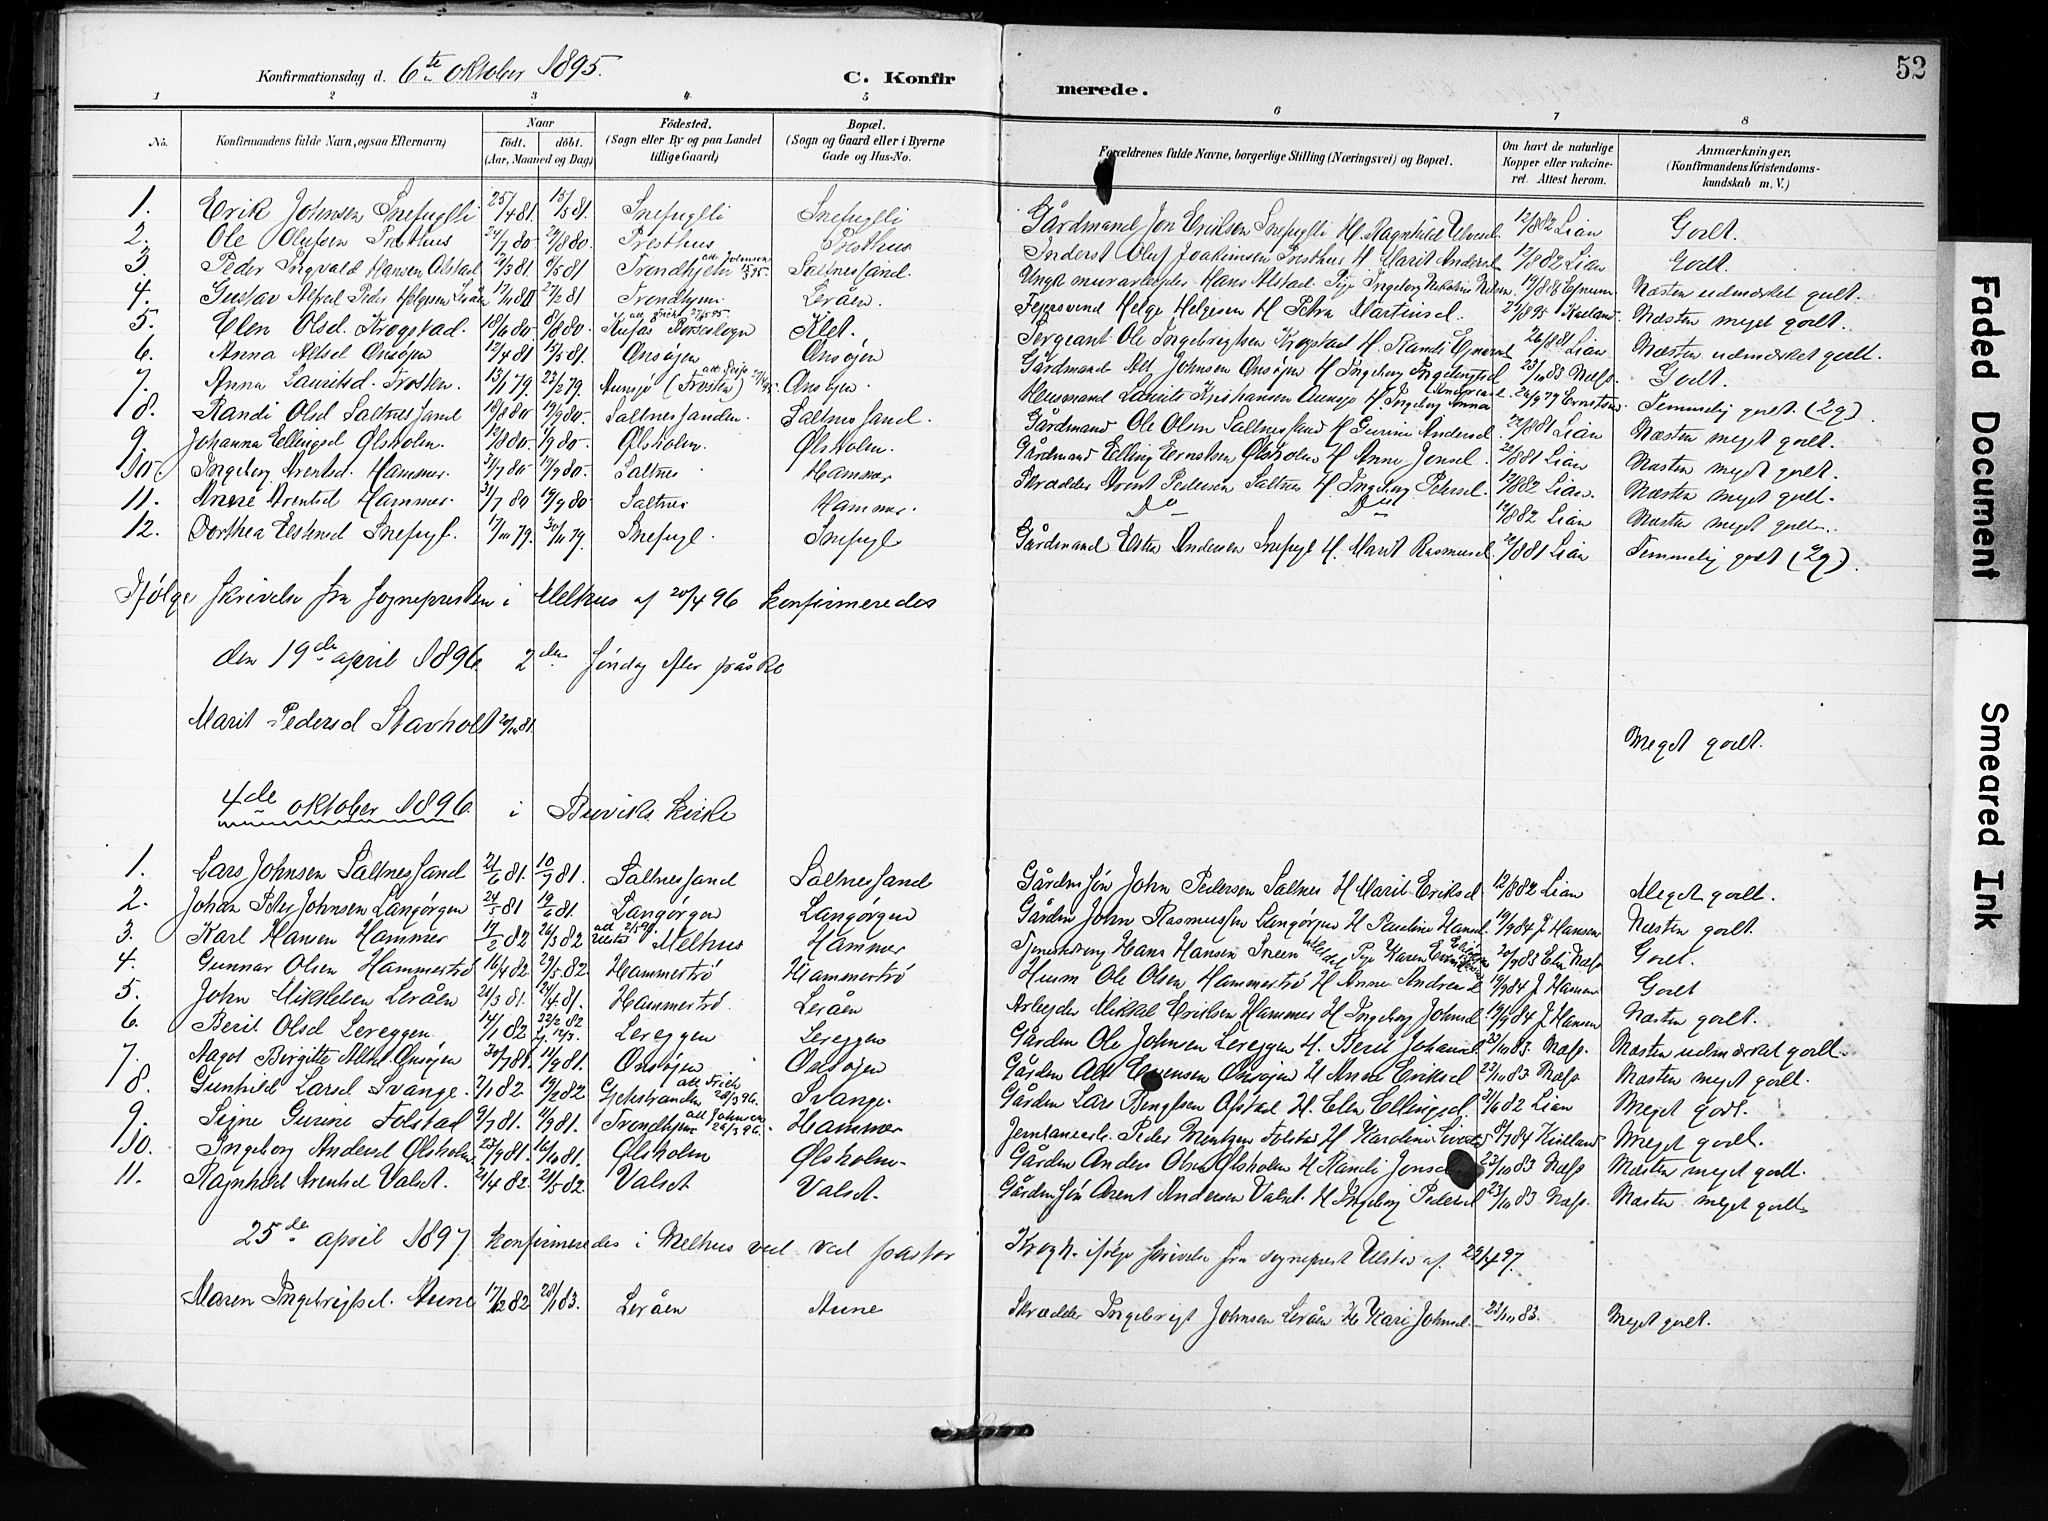 Konfirmationsdag d. 6te oktober 1895.
C. Konfirmerede.
52
1 2 3 4. 5 6 7 8
No. Konfirmandens fulde Navn, ogsaa Efternavn) Naar født. døbt. (Aar, Maaned og Dag) Födested. (Sogn eller By og paa Landet tillige Gaard) Bopæl. (Sogn og Gaard eller i Byerne Gade og Hus-No. Forældrenes fulde Navne, borgerlige Stilling (Næringsvei) og Bopæl. Om havt de naturlige Kopper eller vakcineret. Attest herom. Anmærkninger. (Konfirmandens Kristendomskundskab m. V.)
1. Erik Johnsen Snefuglli 25/4 81. 15/5 81. Snefuglli Snefuglli Gårdmand Jon Eriksen Snefuglli H. Ragnhild 12/8 82 Lian Godt.
2. Ole Olufsen Presthus 24/7 80. 29/8 80. Presthus Presthus Inderst Oluf Joakimsen Presthus H. Marit Andersd 12/8 82 Lian Godt.
3. Peder Ingvald Hansen Ølstad Trondhjem Saltnessand. Ungk. murarbeider Hans Ølstad Pige Ingeborg Næsten udmærket godt.
4. Gustav Alfred Peder Helgesen Leråen 27/2 81 Trondhjem Leråen. Helge Helgesen H Petra Martinsd. Næsten meget godt.
5. Elen Olsd. Krogstad. 18/6 80. 8/8 80. Klet. Sergeant Ole Ingebrigtsen Krogstad H. Randi 26/8 81 Lian Næsten udmærket godt.
6. Anna Altsd Onsøjen 12/4 81 15/5 81. Onsøjen Onsøjen Gårdmand Alt Johnsen Onsøjen H Ingeborg 23/10 83 Næss. Godt.
7. Anna Lauritsd. Trosten. 13/1 79. 23/2 79. Aunsjø (Trosten) Onsøjen. Husmand Laurits Kristiansen H. Ingeborg Anna Temmelig godt. (2g).
8. Randi Olsd Saltnessand 18/8 80 19/9 80. Saltnessanden. Saltnessand. Gårdmand Ole Olsen Saltnessand H Gurine Andersd. Lian Næsten meget godt.
9. Johanna Ellingsd Ølsholm. 12/8 80. Ølsholm. Ølsholm. Gårdmand Elling Erntsen Ølsholm H Anne Jonsd. Lian Næsten meget godt.
10. Ingeborg Arentsd. Hammer. 31/7 80. 19/9 80. Saltnes Hammer Skrædder Arent Pedersen Saltnes H Ingeborg Petersd. 12/8 82 Lian. Næsten meget godt.
11. Anne Arentsd Hammer. 31/7 80 19/9 80. Saltnes Hammer. Do Do 12/8 82 Lian Næsten meget godt.
12. Dorthea Estensd Snefugl. 17/10 79. 30/11 79. Snefugl. Snefugl Gårdmand Esten Andersen Snefugl H. Marit Rasmusd. Lian Temmelig godt (2g).
Ifølge skrivelse fra sognepresten i Melhus af 20/4 96 konfirmeredes
den 19de april 1896. 2den søndag efter påske
Marit Pedersd Stavholt 20/10 81. Meget godt.
4de oktober 1896 i Buviks kirke
1. Lars Johnsen Saltnessand 21/6 81. 10/7 81. Saltnessand Saltnessand Gårdm søn John Pedersen Saltnes H Marit Eriksd 12/8 82 Lian Meget godt.
2. Johan Peter Johnsen Langørgen 24/5 81 19/6 81. Langørgen Langørgen Gårdm John Rasmussen Langørgen H Pauline Hansd. 19/9 84 J. Hansen Næsten godt.
3. Karl Hansen Hammer 17/2 82 26/3 82 Melhus Hammer Hans Hansen Pige Karen 20/9 83 Næss Godt.
4. Gunnar Olsen Hammertrø 16/4 82. 29/5 82. Hammertrø Hammertrø Husm Ole Olsen Hammertrø H Anne Andersd 19/9 84 J. Hansen Godt
5. John Mikkelsen Leråen 21/3 81. 24/4 81. Hammertrø. Leråen Arbeider Mikkel Eriksen Hammer H Ingeborg Johnsd 19/9 84 J. Hansen Næsten godt.
6. Beril Olsd Lereggen 14/1 82 22/2 82 Lereggen Lereggen Gården Ole Johnsen Lereggen H. Berit Johansd. 23/10 83. Næss. Næsten udmærket godt.
7. Aagot Birgitte Altsd Onsøjen 30/7 81. 11/9 81. Onsøjen Onsøjen Gården Alt Onsøjen H Anne Eriksd 23/10 83. Næss. Næsten meget godt.
8. Gunhild Larsd Svange. 2/1 82 19/2 82. Gjetstranden Svange. Gården Lars Bengtsen Ofstad H. Elen Ellingsd. 31/6 82 Lian Meget godt.
9. Signe Gurine Folstad 9/7 81. 11/9 81. Trondhjem att Johnsen 26/3 96. Hammer Peder Mentzen Folstad H Karoline 8/7 84 Kielland Meget godt.
10. Ingeborg Andersd Ølsholm 23/9 81. 16/10 81. Ølsholm Ølsholm. Gården Anders Olsen Ølsholm H Randi Jonsd 23/10 83 Næss. Næsten meget godt.
11. Ragnhild Arentsd Valset. 21/4 82. 21/5 82. Valset Valset. Gårdm søn Arent Andersen Valset. H Ingeborg Pedersd 23/10 83 Næss. Næsten meget godt.
25de april 1897 konfirmeredes i Melhus ved ved pastor Krogh. ifølge skrivelse fra sogneprest Ulstad af. 29/4 97.
Maren Ingebrigtsd. Aune 17/12 82 28/1 83. Leråen Aune Skrædder Ingebrigt Johnsen Leråen H Kari Johnsd. 23/10 83. Meget godt.
Faded Document
Smeared Ink